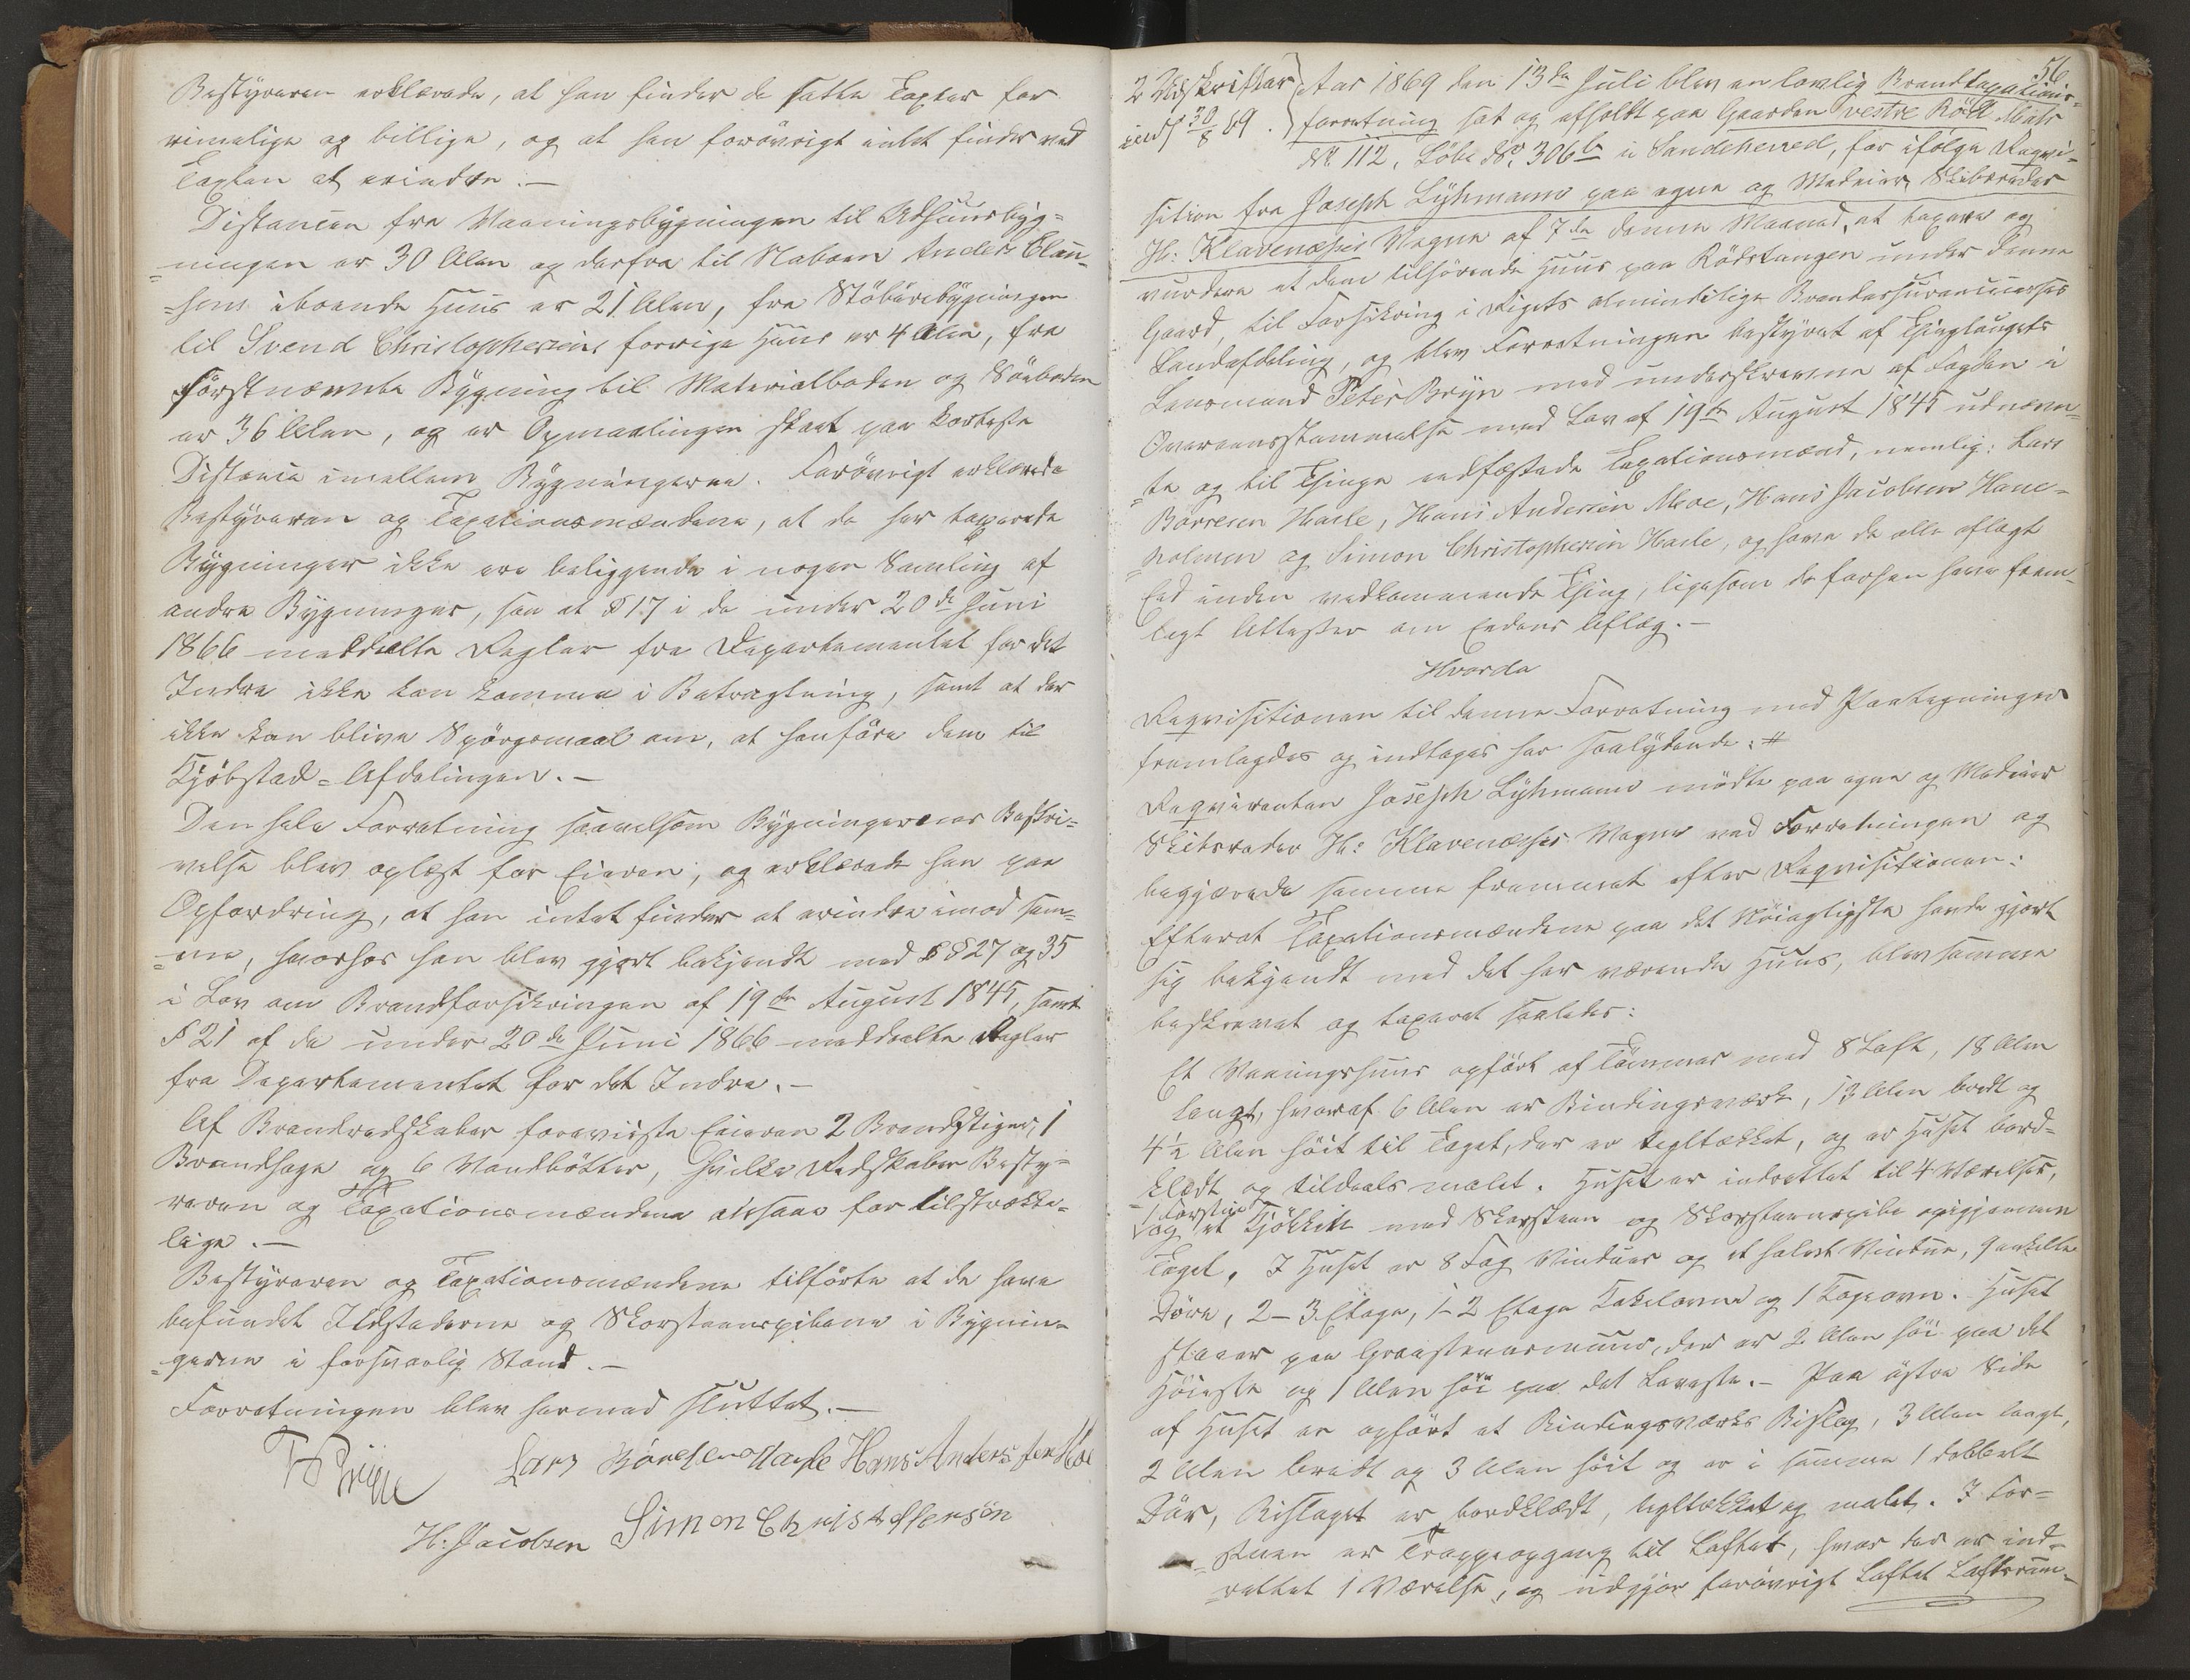 Bestyreren erklærede, at han finder de satte Taxter for
rimelige og billige, og at han forøvrigt intet finder ved
Taxten at erindre.—
Distancen fra Vaaningsbygningen til Udhuusbyg=
=ningen er 30 Alen og derfra til Naboen Anders Clau=
=sens iboende Huus er 21 Alen, fra Stöbüebygningen
til Svend Christophersens forrige Huus er 4 Alen, fra
förstnævnte Bygning til Materialboden og Söeboden
er 36 Alen, og er Opmaalingen skeet paa korteste
Distance imellem Bygningerne. Forövrigt erklærede
Bestyreren og Taxationsmændene, at de her taxerede
Bygninger ikke ere beliggende i nogen Samling af
andre Bygninger, saa at § 17 i de under 20de Juni
1866 meddeelte Regler fra Departementet for det
Indre ikke kan komme i Betragtning, samt at der
ikke kan blive Spörgsmaal om, at henföre dem til
Kjöbstad=Afdelingen.—
Den hele Forretning saavelsom Bygningernes Beskri=
velse blev oplæst for Eieren, og erklærede han paa
Opfordring, at han intet finder at erindre imod sam=
=me, hvorhos han blev gjort bekjendt med § § 27 og 35
i Lov om Brandforsikringen af 19de August 1845, samt
§ 21 af de under 20de Juni 1866 meddeelte Regler
fra Departementet for det Indre.—
Af Brandredskaber foreviiste Eieren 2 Brandstiger, 1
Brandhage og 6 Vandbötter, hvilke Redskaber Besty=
reren og Taxationsmændene ansaae for tilstrække=
lige.—
Bestyreren og Taxationsmændene tilförte at de have
befundet Ildstederne og Skorsteenspiberne i Bygnin=
=gerne i forsvarlig Stand.—
Forretningen blev hermed sluttet.—
P Bryn Lars Börresen Hasle Hans Andersen Moe
H. Jacobsen Simon Christoffersön
56
2 Udskrifter
inds 30/8 69.
Aar 1869 den 13de Juli blev en lovlig Brandtaxations=
forretning sat og afholdt paa Gaarden vestre Röd Matr
Nr. 112, Löbe No. 306b i Sandeherred, for ifölge Reqvi=
sition fra Joseph Lyhmann paa egne og Medeier Skibsreder
Hr. Klavenæsses Vegne af 7de denne Maaned, at taxere og
vurdere et dem tilhörende Huus paa Rödstangen under denne
Gaard, til Forsikring i Rigets almindelige Brandassuranceses
Landafdeling, og blev Forretningen bestyret af Thinglaugets
Lensmand Peter Bryn med underskrevne af Fogden i
Overeensstemmelse med Lov af 19de August 1845 udnævn=
=te og til Thinge eedfæstede Taxationsmænd, nemlig: Lars
Börresen Hasle, Hans Andersen Moe, Hans Jacobsen Hane=
=holmen og Simon Christophersen Hasle, og have de alle aflagt
Eed inden vedkommende Thing, ligesom de forhen have frem=
lagt Attester om Eedens Aflæg.—
Hvorda
Reqvisitionen til denne Forretning med Paategninger
fremlagdes og indtages her saalydende: #
Reqvirenten Joseph Lyhmann mödte paa egne og Medeier
Skibsreder Hr. Klavenæsses Vegne ved Forretningen og
begjærede samme fremmet efter Reqvisitionen:
Efterat Taxationsmændene paa det Nöiagtigste havde gjort
sig bekjendt med det her værende Huus, blev samme
beskrevet og taxeret saaledes:
Et Vaaningshuus opfört af Tömmer med 8 Laft, 18 Alen
langt, hvoraf 6 Alen er Bindingsværk, 13 Alen bredt og
4½ Alen höit til Taget, der er tegltækket, og er Huset bord=
klædt og tildeels malet. Huset er indrettet til 4 Værelser,
1 Forstue
og et Kjökken med Skorsteen og Skorsteenspibe opigjennem
Taget. I Huset er 8 Fag Vinduer og et halvt Vindue, 9 enkelte
Döre, 2-3 Etage, 1-2 Etage Kakelovne og 1 Kogeovn. Huset
staaer paa Graasteensmuur, der er 2 Alen höi paa det
Höieste og 1 Alen höi paa det Laveste.— Paa östre Side
af Huset er opfört et Bindingsværks Bislag, 3 Alen langt,
2 Alen bredt og 3 Alen höit og er i samme 1 dobbelt
Dör, Bislaget er bordklædt, tegltækket og malet. I For=
=stuen er Trappeopgang til Loftet, hvor der er ind=
=rettet 1 Værelse, og udgjör forövrigt Loftet Loftsrum=